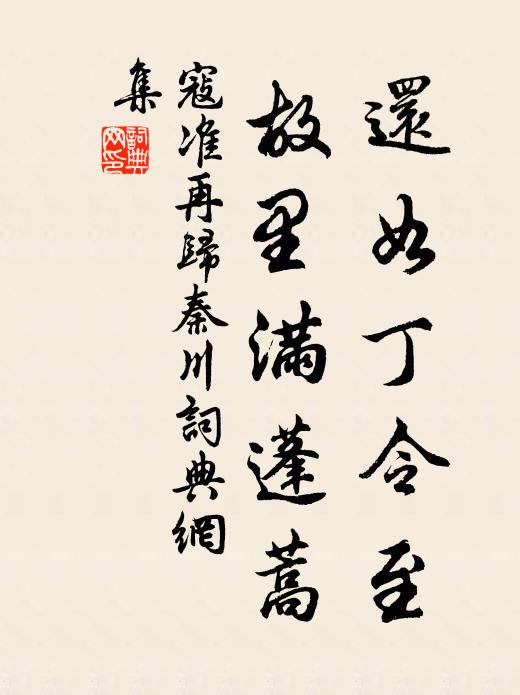 還如丁令至
故里滿蓬蒿
寇准再歸秦川詞典網
集
詞典
网印